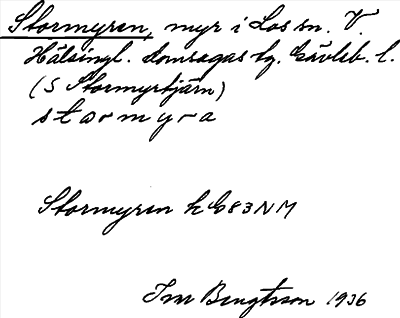 Stormyren, myr i Los sn. V.
Hälsingl. domsagas tg. Gävleb. l.
(S Stormyrtjärn)
stormyra
Stormyren k G83NM
Bengtsson 1936